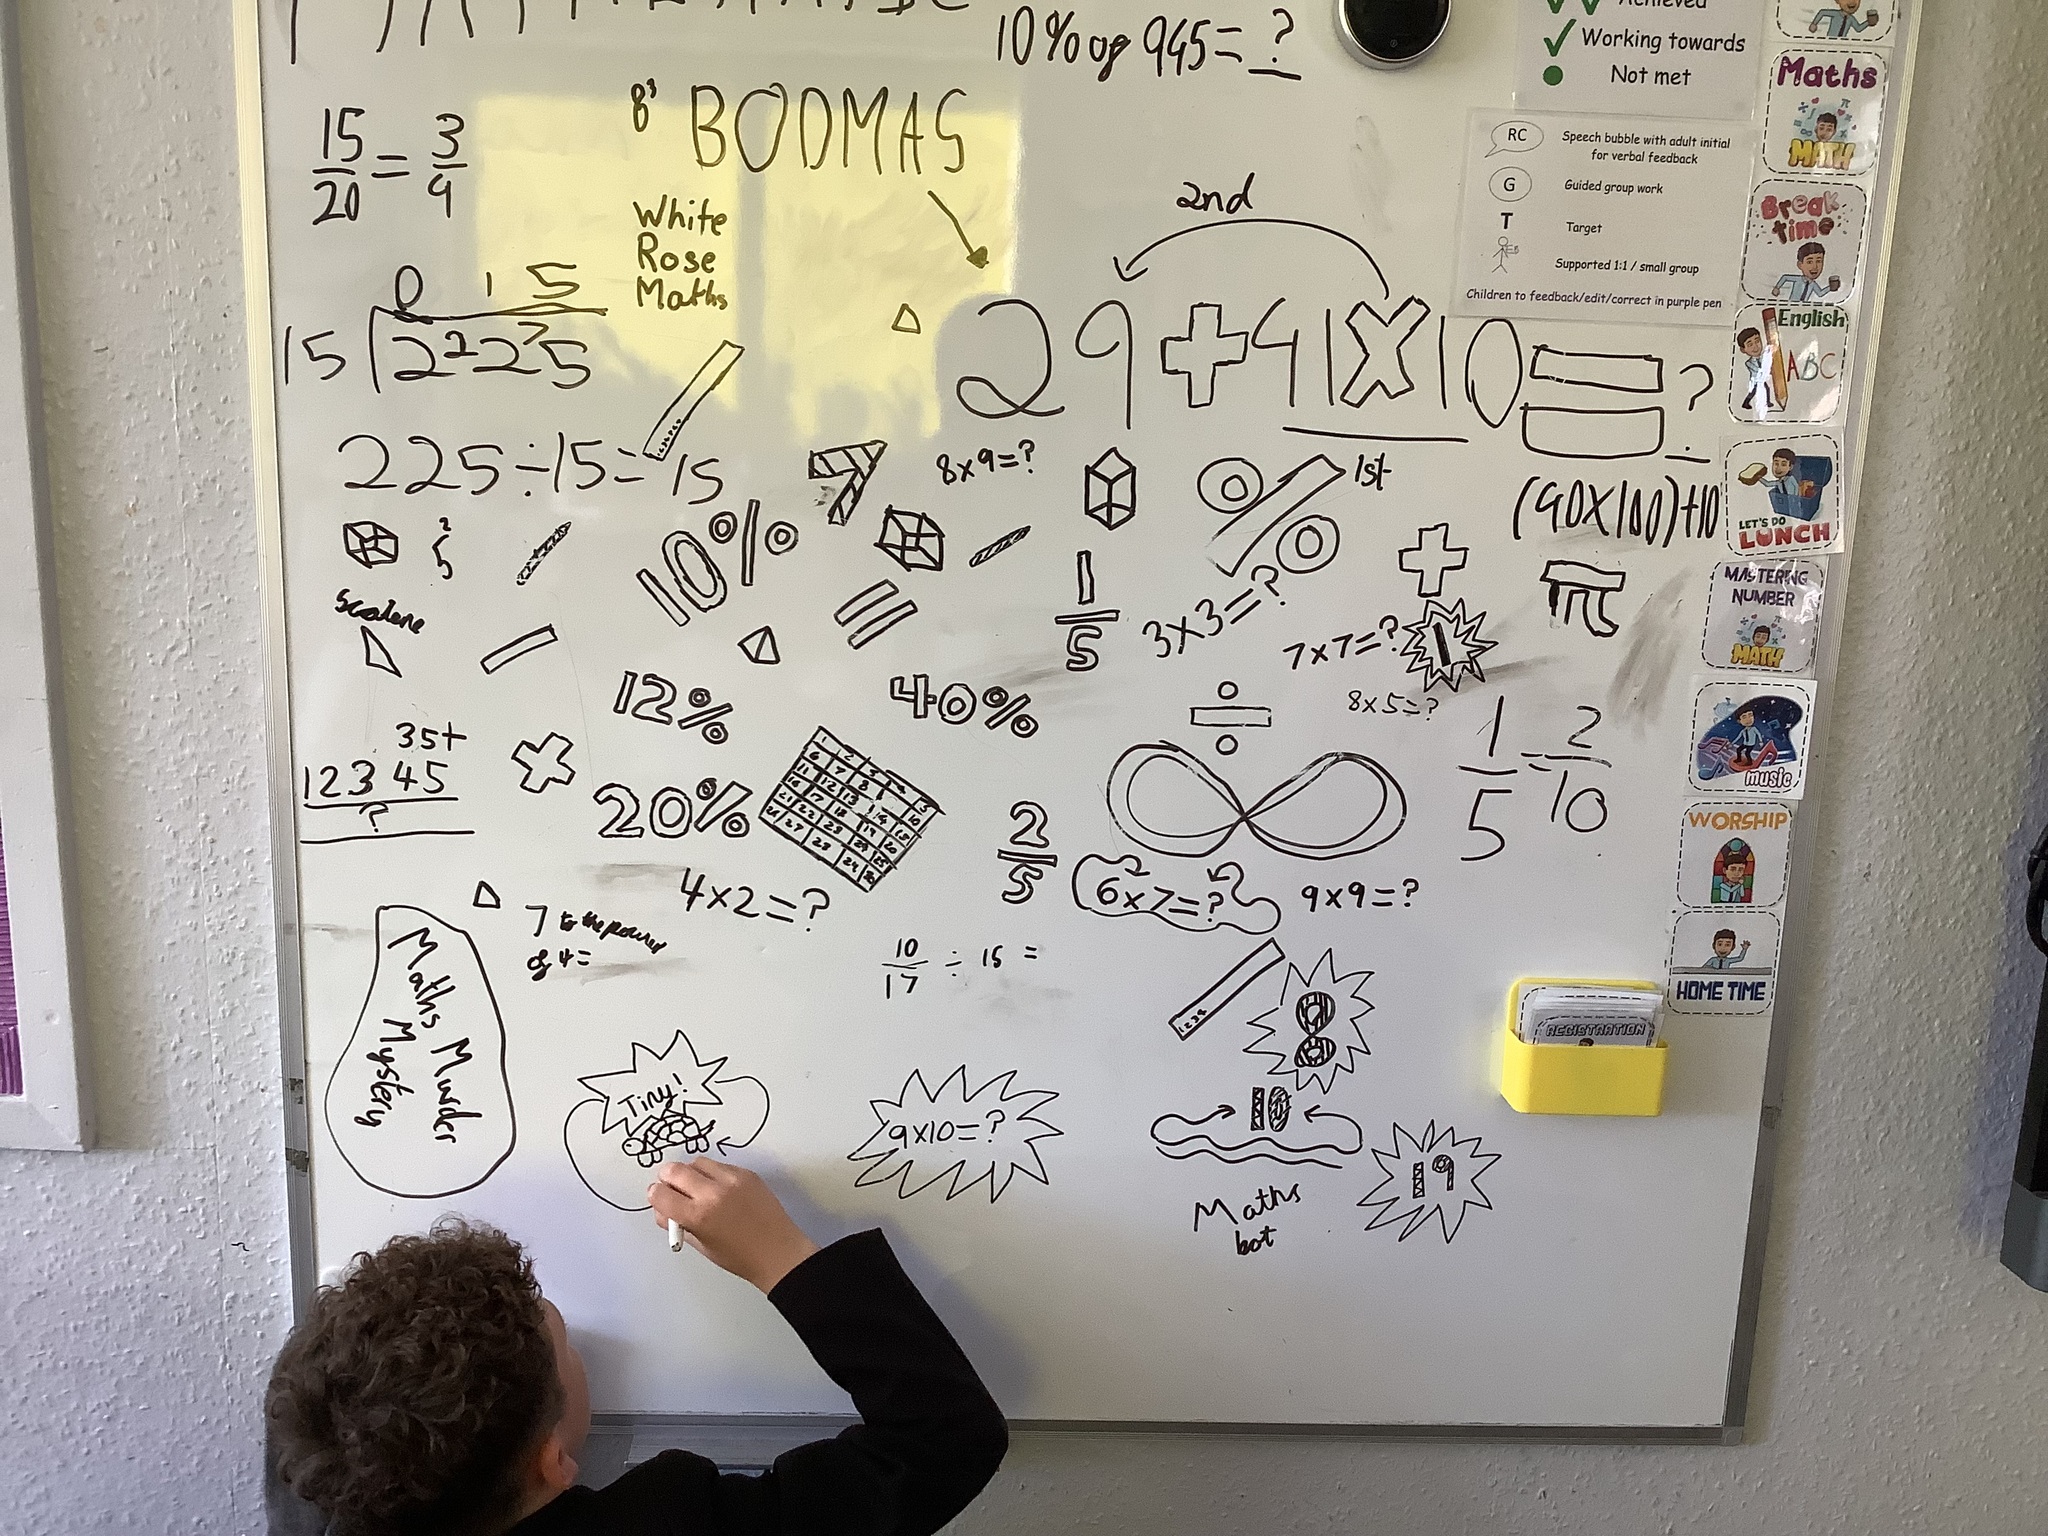 10% of 945 = ?
Achieved
Working towards
Not met
Maths
MATH
8³ BODMAS
15/20 = 3/4
RC Speech bubble with adult initial
for verbal feedback
G Guided group work
T Target
Supported 1:1 / small group
Children to feedback/edit/correct in purple pen
Break
time
White
Rose
Maths
2nd
0 1 5
15 2 ²2 ⁷5
29 + 41 x 10 = ?
English
ABC
225 ÷ 15 = 15
7
8 x 9 = ?
%
1st
(40 x 100) + 10
LET'S DO
LUNCH
2
5
10%
=
1/5
3 x 3 = ?
+
π
MASTERING
NUMBER
MATH
scalene
7 x 7 = ?
1
12%
40%
÷
8 x 5 = ?
1/5 = 2/10
music
35+
12345
?
20%
2/5
∞
WORSHIP
4 x 2 = ?
6 x 7 = ?
9 x 9 = ?
7 to the power
of 4 =
10/17 ÷ 15 =
HOME TIME
REGISTRATION
Maths Murder
Mystery
1234
8
Tiny!
9x10=?
10
19
Maths
bot